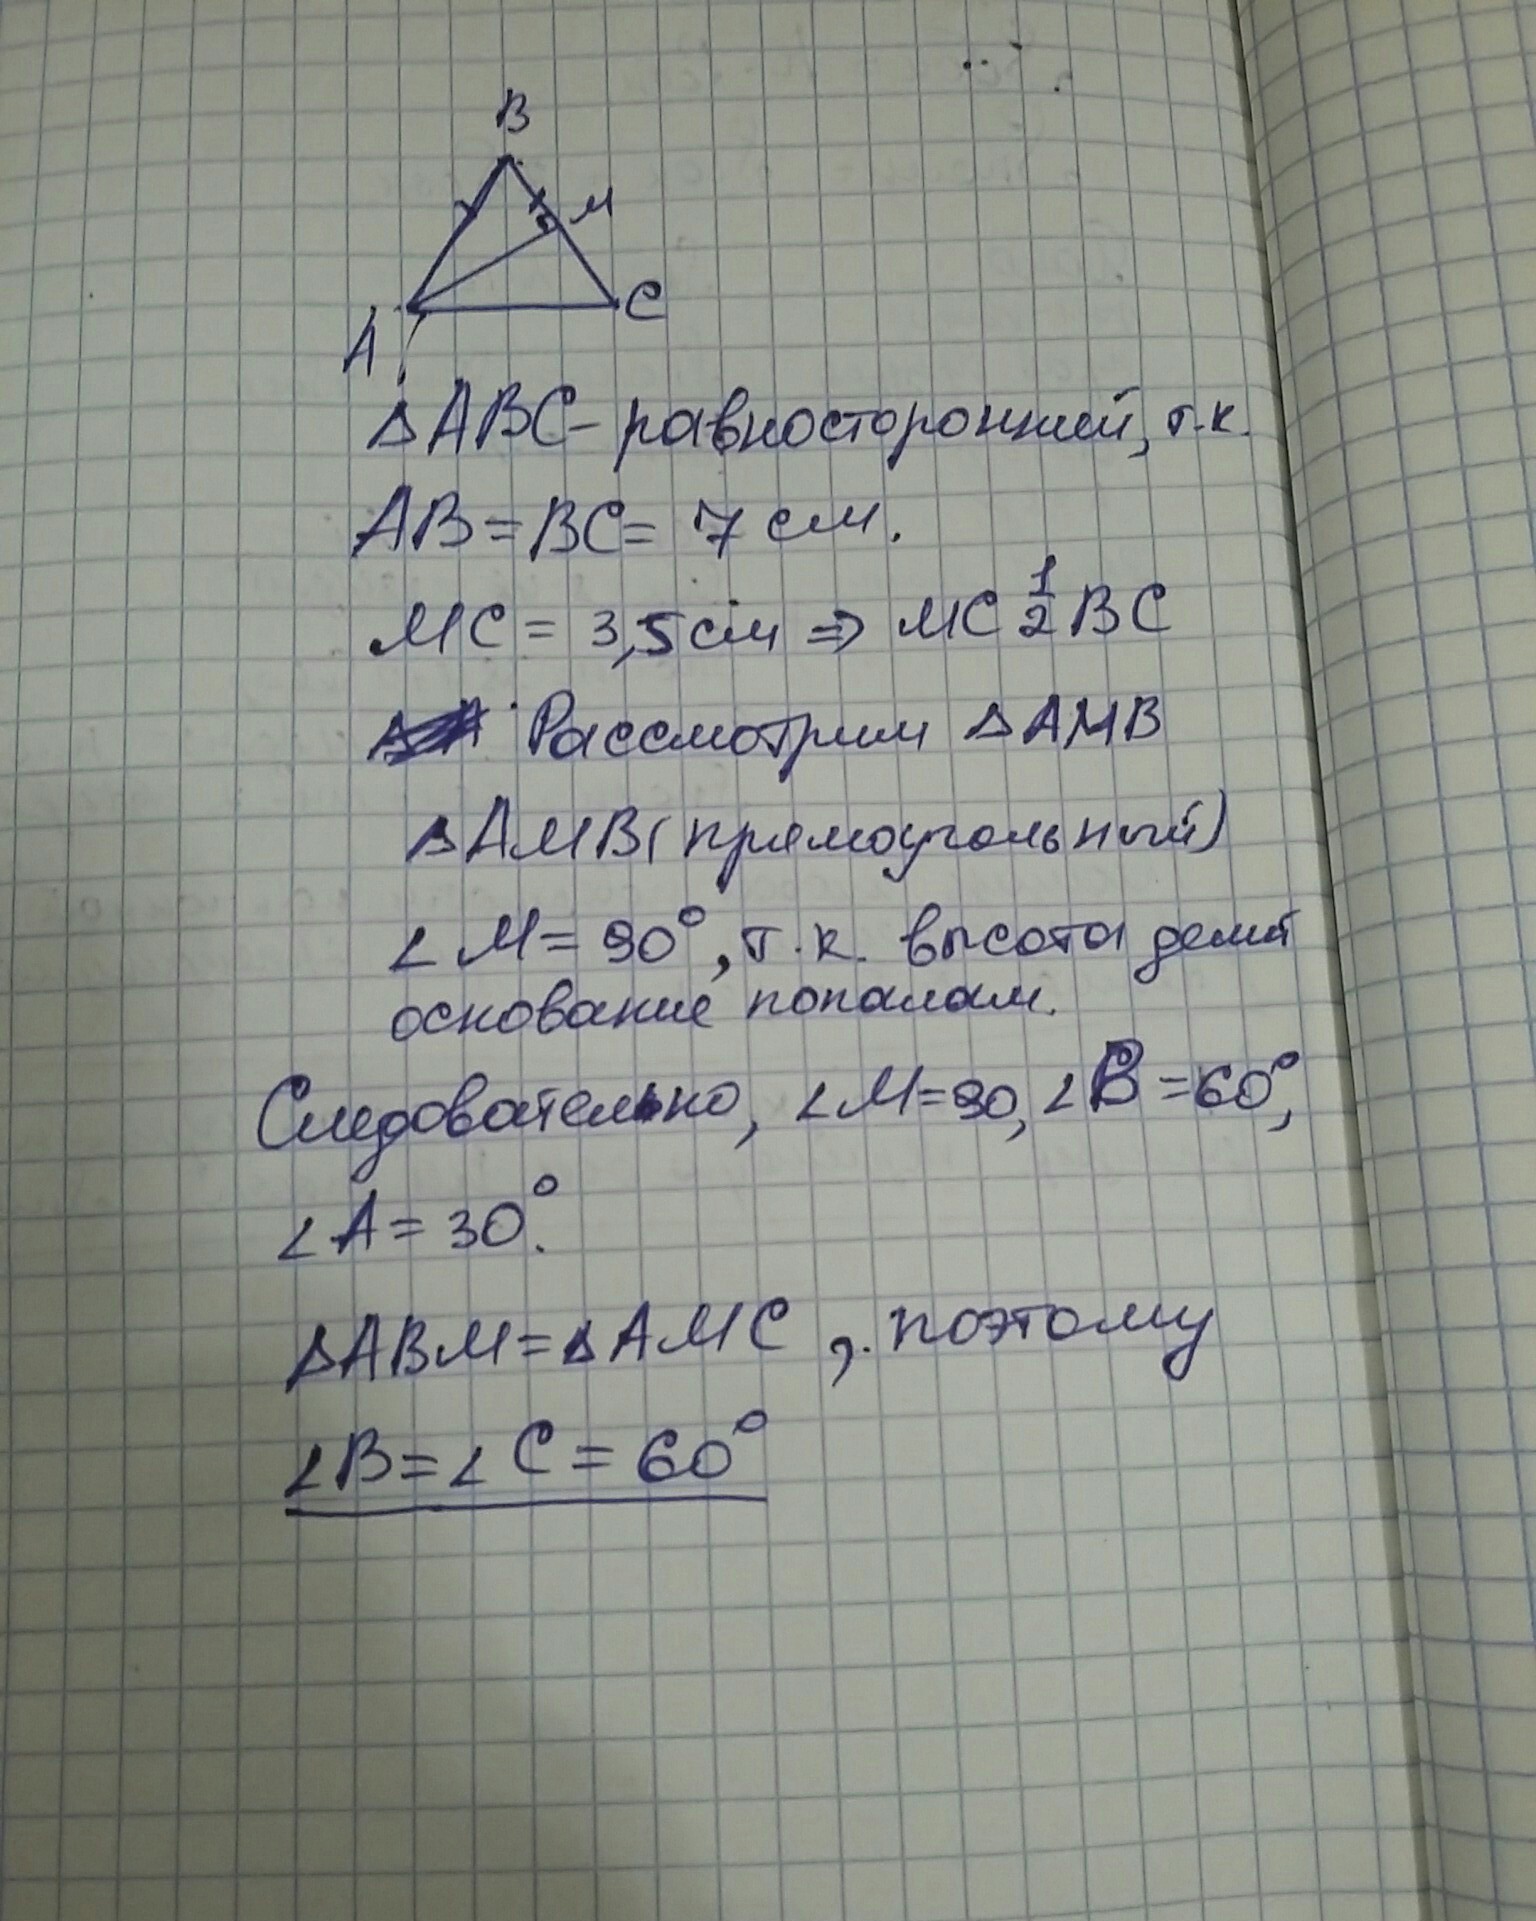 B
M
A
C
△ABC - равносторонний, т.к.
AB = BC = 7 см.
MC = 3,5 см ⇒ MC 1/2 BC
Рассмотрим △AMB
△AMB (прямоугольный)
∠M = 90°, т.к. высота делит
основание пополам.
Следовательно, ∠M = 90, ∠B = 60°,
∠A = 30°.
△ABM = △AMC, поэтому
∠B = ∠C = 60°